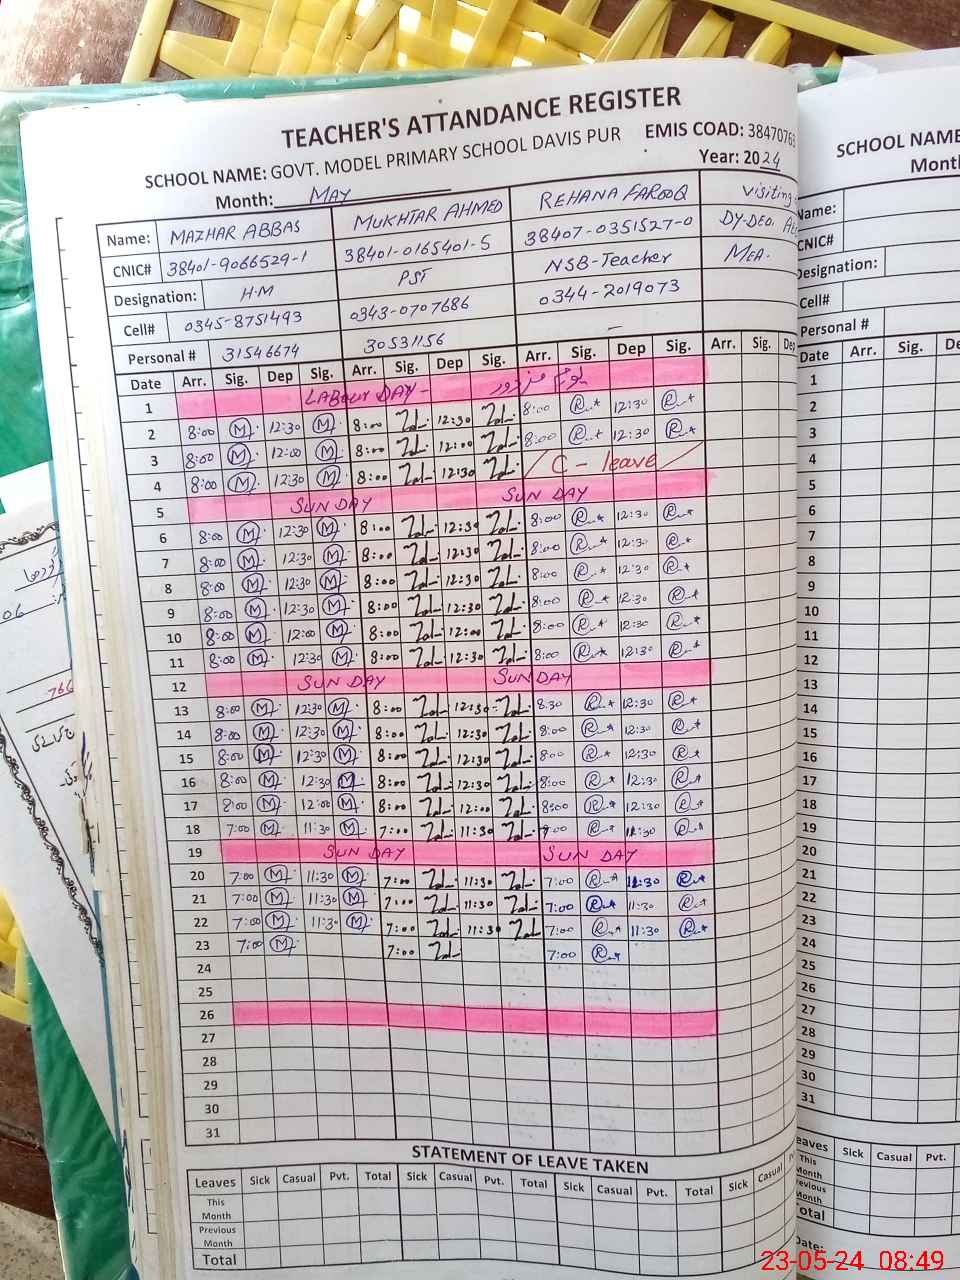 TEACHER'S ATTANDANCE REGISTER
SCHOOL NAME: GOVT. MODEL PRIMARY SCHOOL DAVIS PUR EMIS COAD: 38470763
Month: May Year: 2024
Name: MAZHAR ABBAS MUKHTAR AHMED REHANA FAROOQ Visiting
CNIC# 38401-9066529-1 38401-0165401-5 38407-0351527-0 DY-DEO.
Designation: H.M PST NSB-Teacher MEA.
Cell# 0345-8751493 0343-0707686 0344-2019073
Personal # 31546674 30531156 —
Date Arr. Sig. Dep Sig. Arr. Sig. Dep Sig. Arr. Sig. Dep Sig. Arr. Sig. Dep
1 LABour DAY - یوم مزدور
2 8:00 M 12:30 M 8:00 12:30 8:00 R 12:30 R
3 8:00 M 12:00 M 8:00 12:00 8:00 R 12:30 R
4 8:00 M 12:30 M 8:00 12:30 C - leave
5 SUNDAY SUNDAY
6 8:00 M 12:30 M 8:00 12:30 8:00 R 12:30 R
7 8:00 M 12:30 M 8:00 12:30 8:00 R 12:30 R
8 8:00 M 12:30 M 8:00 12:30 8:00 R 12:30 R
9 8:00 M 12:30 M 8:00 12:30 8:00 R 12:30 R
10 8:00 M 12:00 M 8:00 12:00 8:00 R 12:30 R
11 8:00 M 12:30 M 8:00 12:30 8:00 R 12:30 R
12 SUNDAY SUNDAY
13 8:00 M 12:30 M 8:00 12:30 8:30 R 12:30 R
14 8:00 M 12:30 M 8:00 12:30 8:00 R 12:30 R
15 8:00 M 12:30 M 8:00 12:30 8:00 R 12:30 R
16 8:00 M 12:30 M 8:00 12:30 8:00 R 12:30 R
17 8:00 M 12:00 M 8:00 12:00 8:00 R 12:30 R
18 7:00 M 11:30 M 7:00 11:30 7:00 R 11:30 R
19 SUNDAY SUNDAY
20 7:00 M 11:30 M 7:00 11:30 7:00 R 11:30 R
21 7:00 M 11:30 M 7:00 11:30 7:00 R 11:30 R
22 7:00 M 11:30 M 7:00 11:30 7:00 R 11:30 R
23 7:00 M 7:00 7:00 R
24
25
26
27
28
29
30
31
STATEMENT OF LEAVE TAKEN
Leaves Sick Casual Pvt. Total Sick Casual Pvt. Total Sick Casual Pvt. Total Sick Casual
This Month
Previous Month
Total
SCHOOL NAME
Name:
CNIC#
Designation:
Cell#
Personal #
Date Arr. Sig.
1
2
3
4
5
6
7
8
9
10
11
12
13
14
15
16
17
18
19
20
21
22
23
24
25
26
27
28
29
30
31
Leaves Sick Casual Pvt.
This Month
Previous Month
Total
Date:
23-05-24 08:49